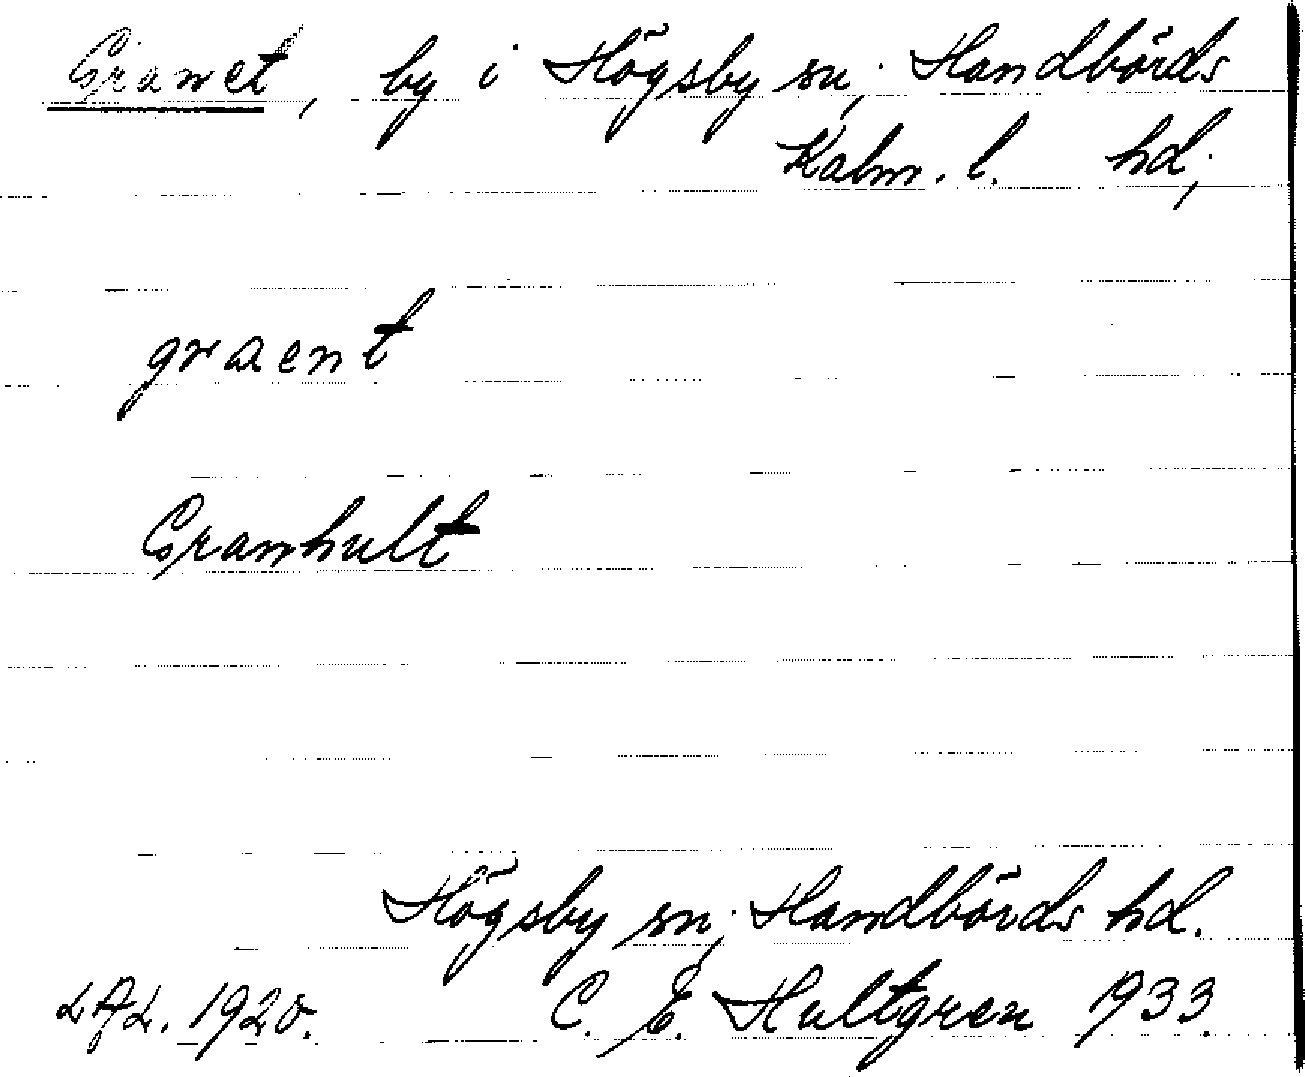 Granet, by i Högsby sn, Handbörds
Kalm. l. hd;
graent
Granhult
Högsby sn, Handbörds hd.
LAL. 1920. C. E. Hultgren 1933.